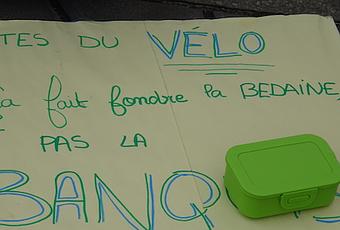 TES DU VÉLO
à fait fondre la BEDAINE,
PAS LA
BANQ